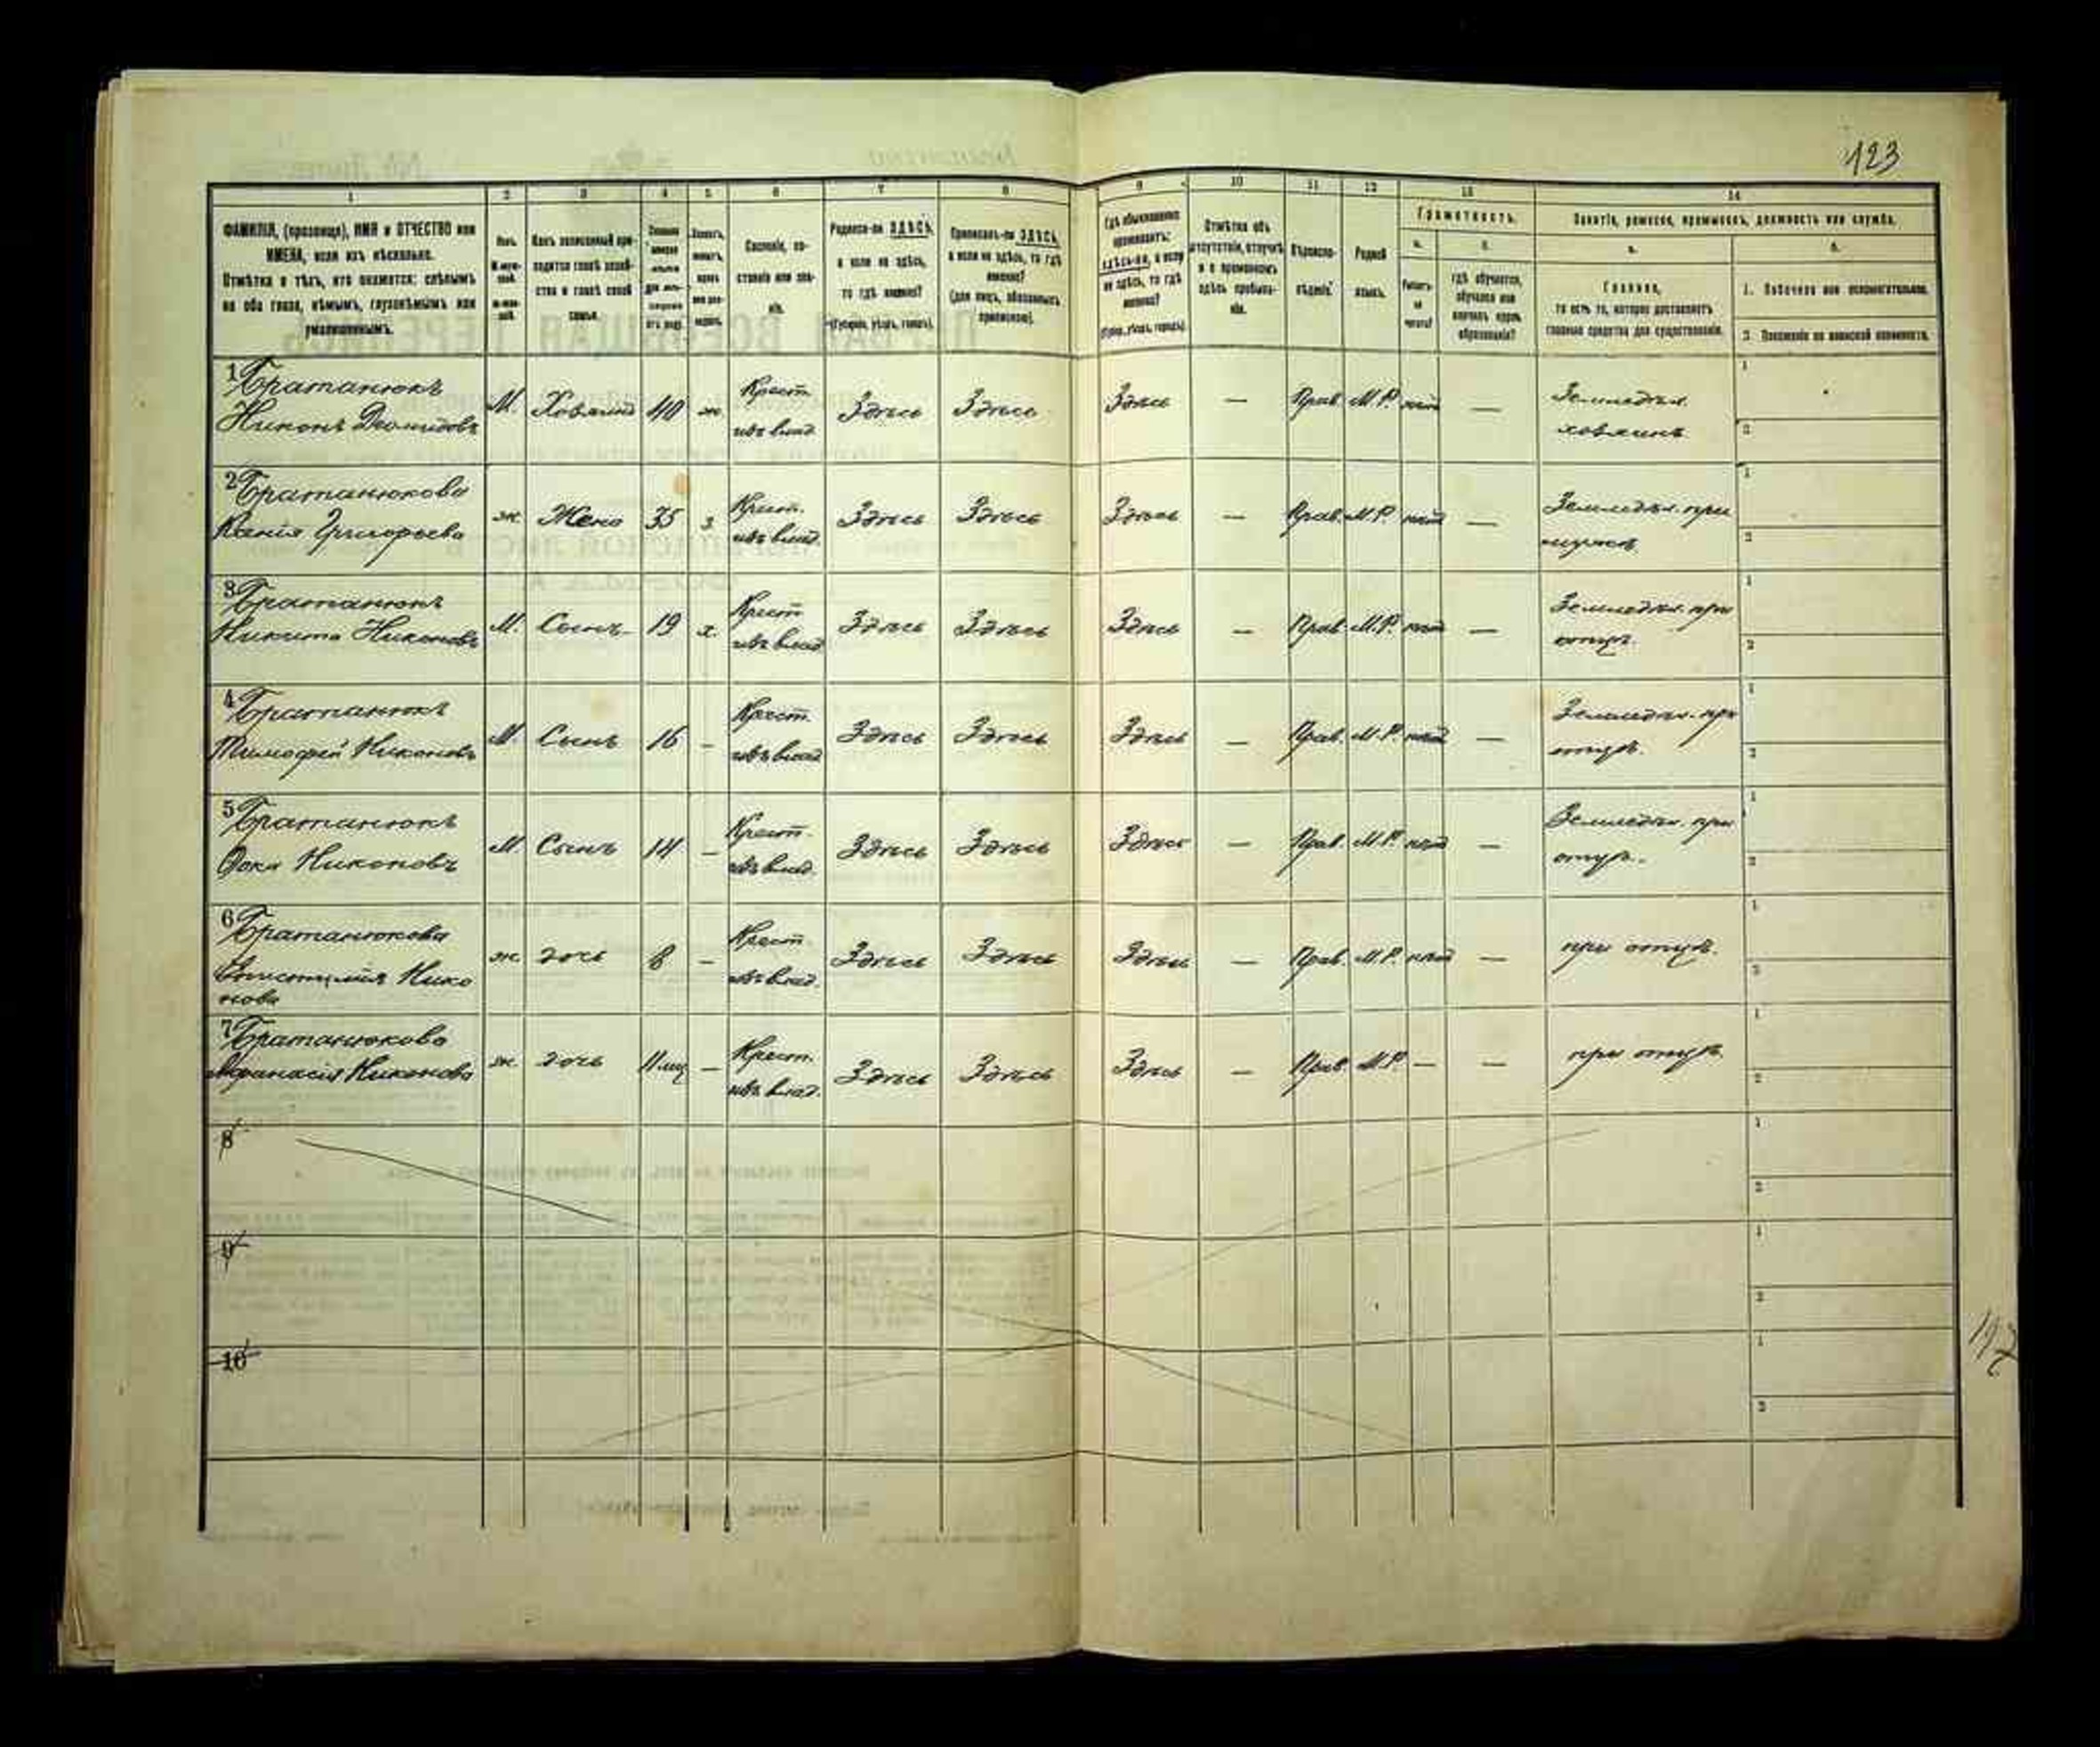 123
1 2 3 4 5 6 7 8 9 10 11 12 13 14
ФАМИЛІЯ, (прозвище), ИМЯ и ОТЧЕСТВО или
ИМЕНА, если ихъ нѣсколько.
Отмѣтка о тѣхъ, кто окажется: слѣпымъ
на оба глаза, нѣмымъ, глухонѣмымъ или
умалишеннымъ.
Какъ записанный при-
ходится главѣ хозяй-
ства и главѣ своей
семьи.
Сословіе, со-
стояніе или зва-
ніе.
Родился-ли ЗДѢСЬ,
а если не здѣсь,
то гдѣ именно?
(Губернія, уѣздъ, городъ).
Приписанъ-ли ЗДѢСЬ,
а если не здѣсь, то гдѣ
именно?
(для лицъ, обязанныхъ
припискою).
Гдѣ обыкновенно
проживаетъ:
здѣсь-ли, а если
не здѣсь, то гдѣ
именно?
(Губер., уѣздъ, городъ).
Отмѣтка объ
отсутствіи, отлучкѣ
и о временномъ
здѣсь пребыва-
ніи.
Вѣроиспо-
вѣданіе.
Родной
языкъ.
Грамотность.
а. б.
Умѣетъ-
ли
читать?
гдѣ обучается,
обучался или
кончилъ курсъ
образованія?
Занятіе, ремесло, промыселъ, должность или служба.
а. б.
Главное,
то есть то, которое доставляетъ
главныя средства для существованія.
1. Побочное или вспомогательное.
2. Положеніе по воинской повинности.
1 Братанюкъ
Никонъ Диомидовъ М. Хозяинъ 40 ж. Крест. изъ влад. Здѣсь Здѣсь Здѣсь — Прав. М.Р. нѣт — Земледѣл. хозяинъ
2 Братанюкова
Ксенія Григорьева ж. Жена 35 з. Крест. изъ влад. Здѣсь Здѣсь Здѣсь — Прав. М.Р. нѣт — Земледѣл. при мужѣ.
3 Братанюкъ
Никита Никоновъ М. Сынъ 19 х. Крест. изъ влад. Здѣсь Здѣсь Здѣсь — Прав. М.Р. нѣт — Земледѣл. при отцѣ.
4 Братанюкъ
Тимофей Никоновъ М. Сынъ 16 — Крест. изъ влад. Здѣсь Здѣсь Здѣсь — Прав. М.Р. нѣт — Земледѣл. при отцѣ.
5 Братанюкъ
Фока Никоновъ М. Сынъ 14 — Крест. изъ влад. Здѣсь Здѣсь Здѣсь — Прав. М.Р. нѣт — Земледѣл. при отцѣ.
6 Братанюкова
Нико
нова ж. дочь 8 — Крест. изъ влад. Здѣсь Здѣсь Здѣсь — Прав. М.Р. нѣт — при отцѣ.
7 Братанюкова
Афанасія Никонова ж. дочь 11 мц — Крест. изъ влад. Здѣсь Здѣсь Здѣсь — Прав. М.Р — — при отцѣ.
8
9
10